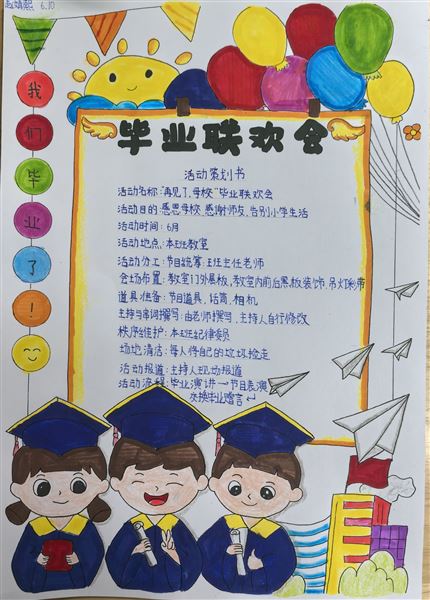 6.10
我们毕业了!
毕业联欢会
活动策划书
活动名称:"再见了,母校"毕业联欢会
活动目的:感恩母校,感谢师友,告别小学生活
活动时间:6月
活动地点:本班教室
活动分工:节目统筹:王班主任老师
会场布置:教室门外展板,教室内前后黑板装饰,吊灯彩带
道具准备:节目道具,话筒,相机
主持与串词撰写:由老师撰写,主持人自行修改
秩序维护:本班纪律委员
场地清洁:每人将自己的垃圾捡走
活动报道:主持人现场报道
活动流程:毕业演讲→节目表演
交换毕业赠言↵